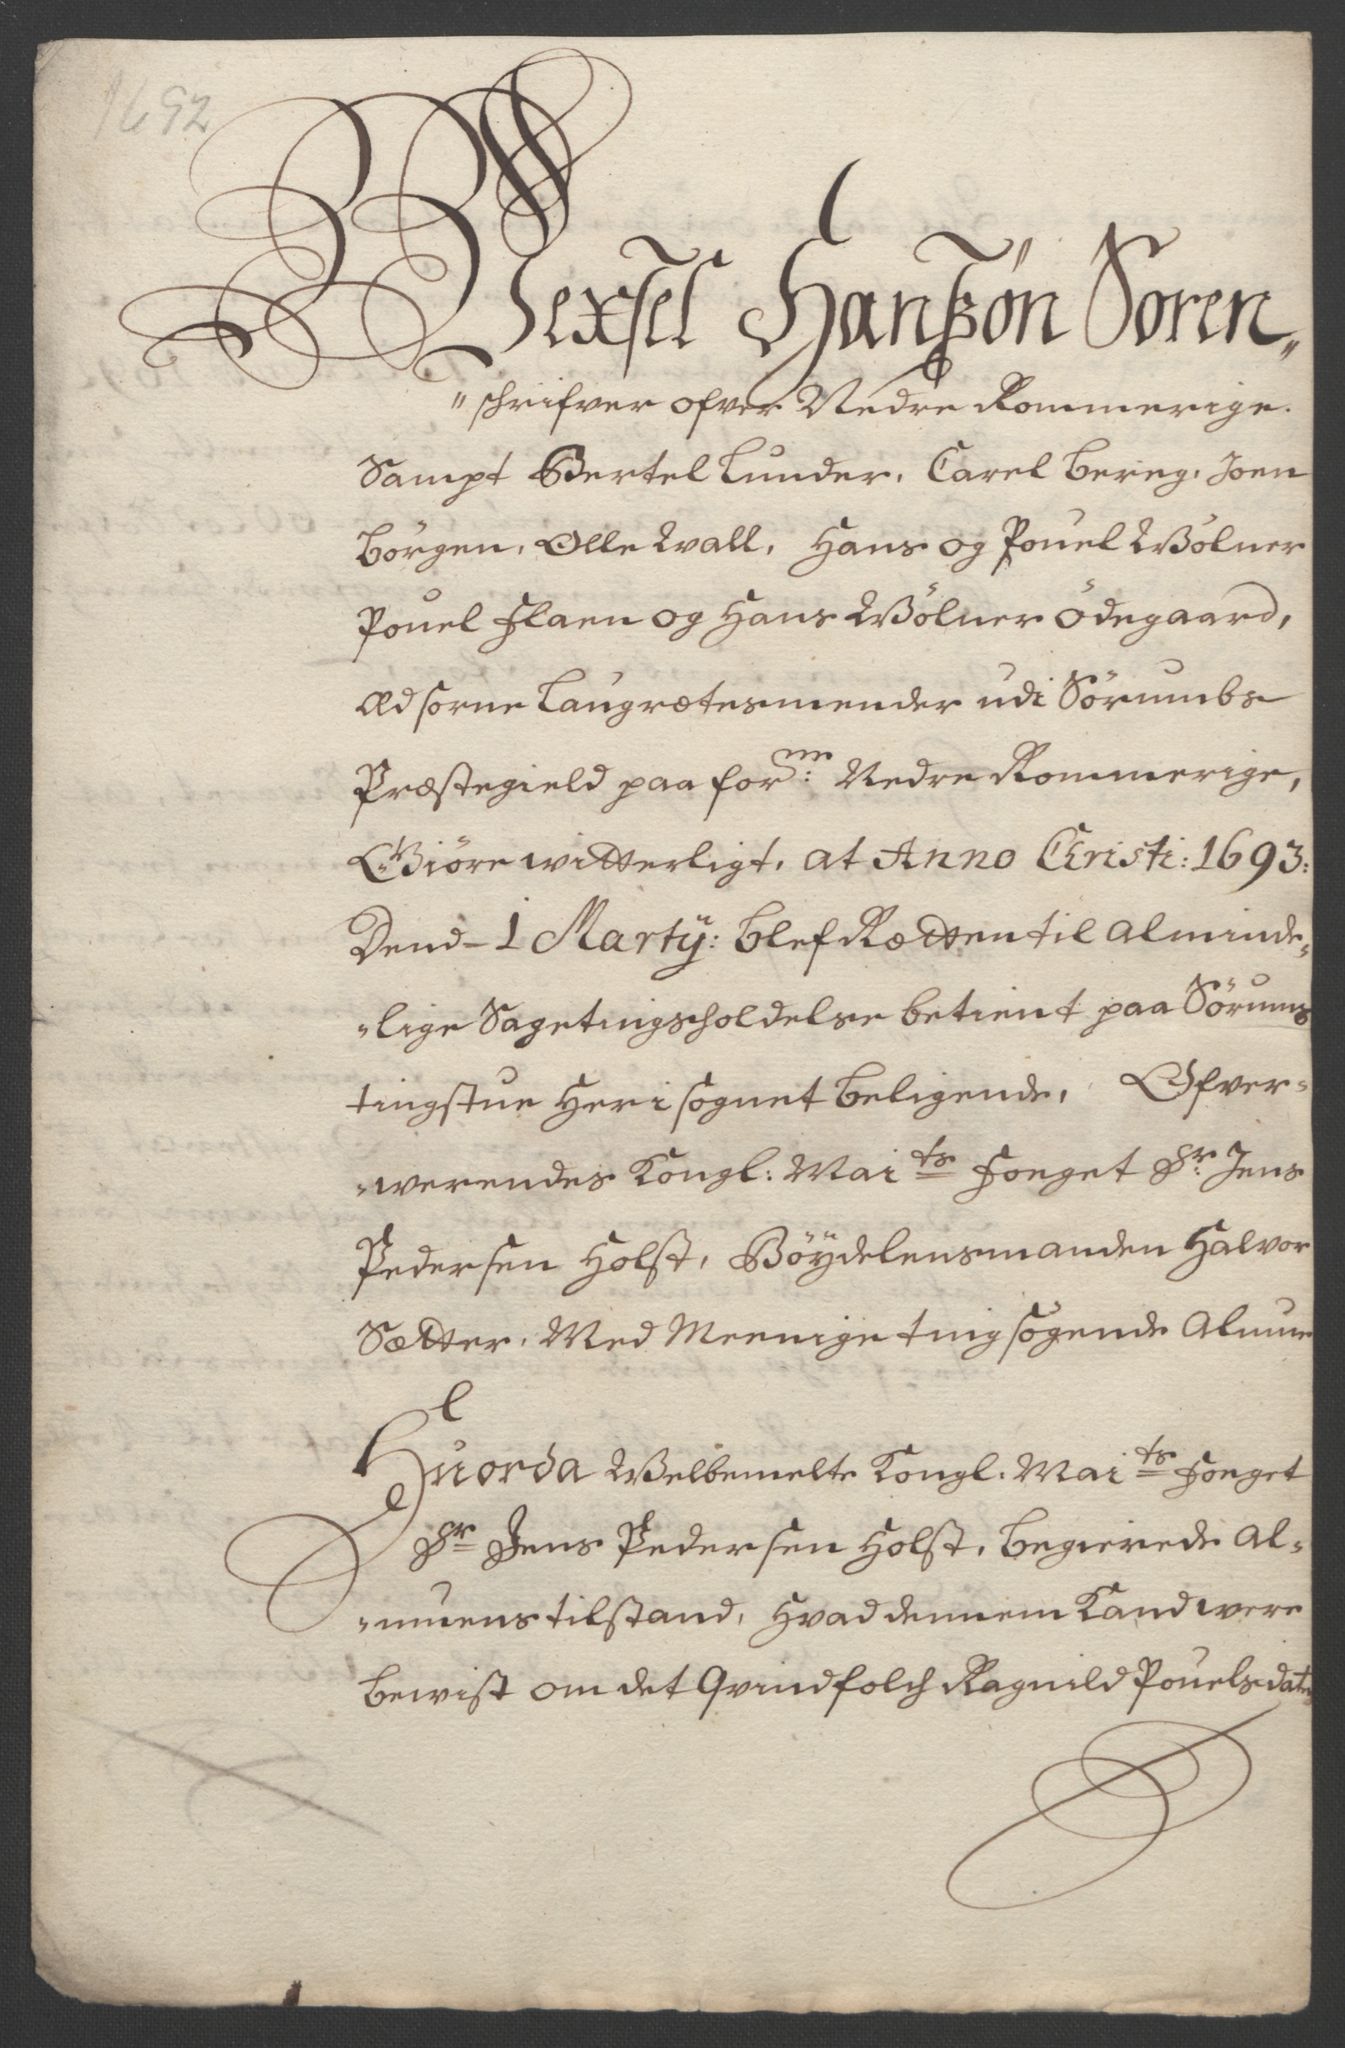 1692
Wexsel Hanszøn Soren„
„schrifver ofver Nedre Rommerige.
Sampt Bertel Lunder, Carel Bereg, Joen
Börgen, Olle Wall, Hans og Pouel Wölner
Pouel Flaen og Hans Wölner Ödegaard,
Ædsorne Laugrætesmender udi Sörumbs
Præstegield paa for.ne Nedre Rommerige,
Giöre witterligt, at Anno Christi: 1693:
Dend 1 Martÿ: blef Rætten til Alminde„
„lige Sagetingsholdelse betient paa Sörums
tingstue her i sognet beligende, Ofver„
„werendes Kongl: Maits Foeget Sr: Jens
Pedersen Holst, Böÿdelensmanden Halvor
Sætter, Med Meenige tingsögende Almue
Huorda Welbemelte Kongl. Maits Foeget
Sr Jens Pedersen Holst, begierede Al„
„muens tilstand, hvad dennem kand were
bewist om det Qvindfolch Ragnild Pouelsdatr